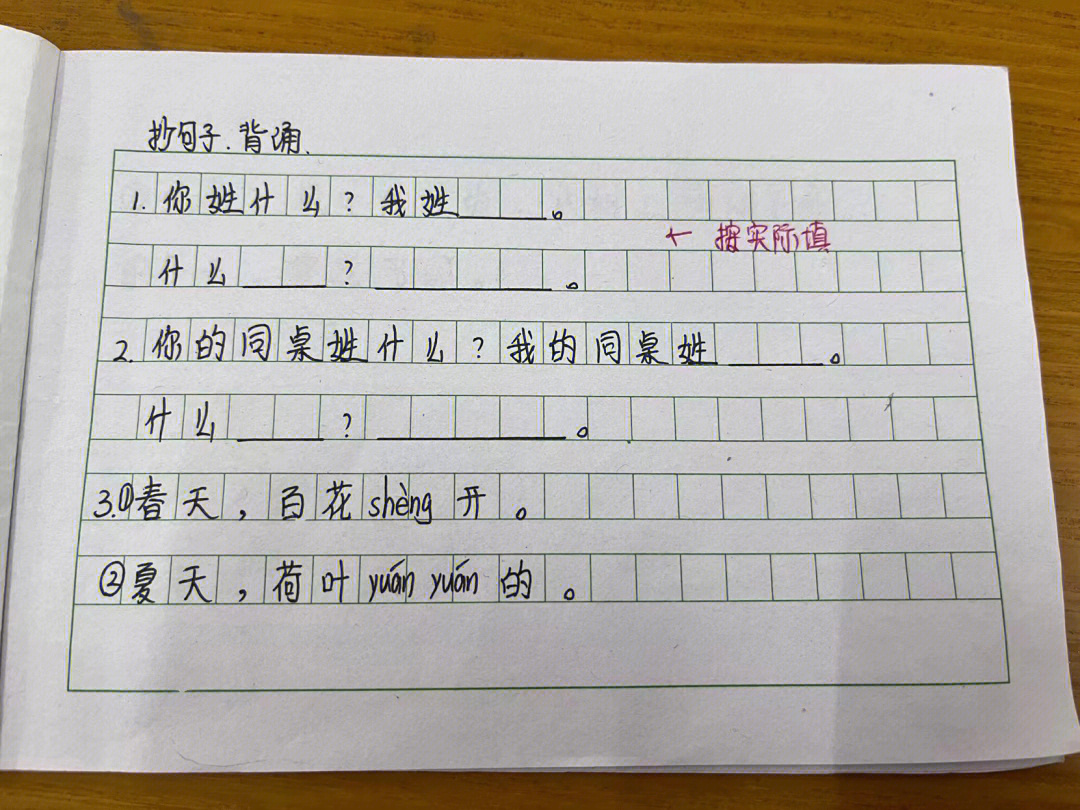 抄句子.背诵.
1.你姓什么?我�____。
← 按实际填
什么____?________。
2.你的同桌姓什么?我的同桌姓____。
什么____?________。
3.①春天,百花shèng开。
②夏天,荷叶yuán yuán的。